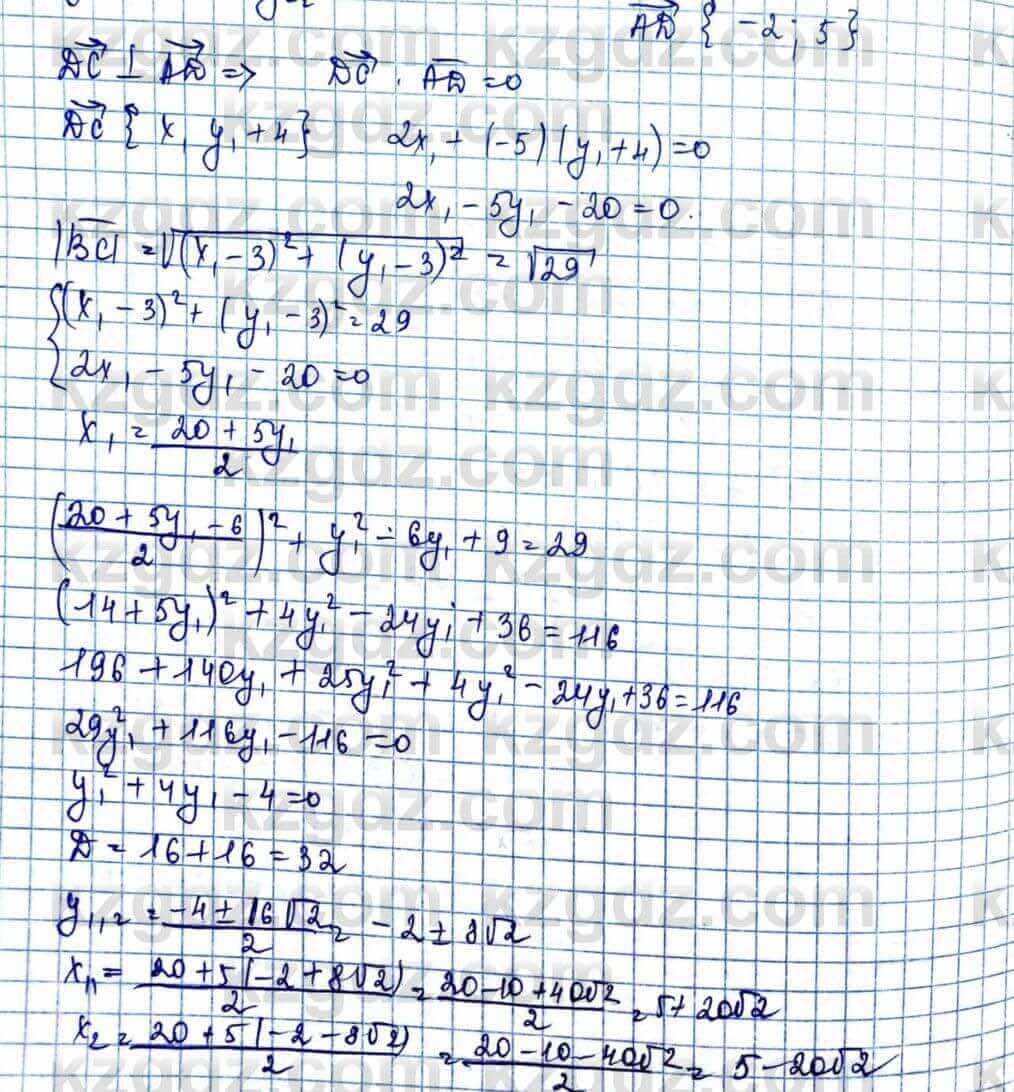 \overrightarrow{AD} { -2; 5 }
\overrightarrow{DC} ⊥ \overrightarrow{AD} => \overrightarrow{DC} · \overrightarrow{AD} = 0
\overrightarrow{DC} { x₁ y₁ + 4 } 2x₁ + (-5)(y₁ + 4) = 0
2x₁ - 5y₁ - 20 = 0.
|\overline{BC}| = √((x₁ - 3)² + (y₁ - 3)²) = √29
{ (x₁ - 3)² + (y₁ - 3)² = 29
2x₁ - 5y₁ - 20 = 0
x₁ = \frac{20 + 5y₁}{2}
(\frac{20 + 5y₁ - 6}{2})² + y₁² - 6y₁ + 9 = 29
(14 + 5y₁)² + 4y₁² - 24y₁ + 36 = 116
196 + 140y₁ + 25y₁² + 4y₁² - 24y₁ + 36 = 116
29y₁² + 116y₁ - 116 = 0
y₁² + 4y₁ - 4 = 0
D = 16 + 16 = 32
y₁,₂ = \frac{-4 ± 16√2}{2} = -2 ± 8√2
x₁₁ = \frac{20 + 5(-2 + 8√2)}{2} = \frac{20 - 10 + 40√2}{2} = 5 + 20√2
x₂ = \frac{20 + 5(-2 - 8√2)}{2} = \frac{20 - 10 - 40√2}{2} = 5 - 20√2
kzgdz.com